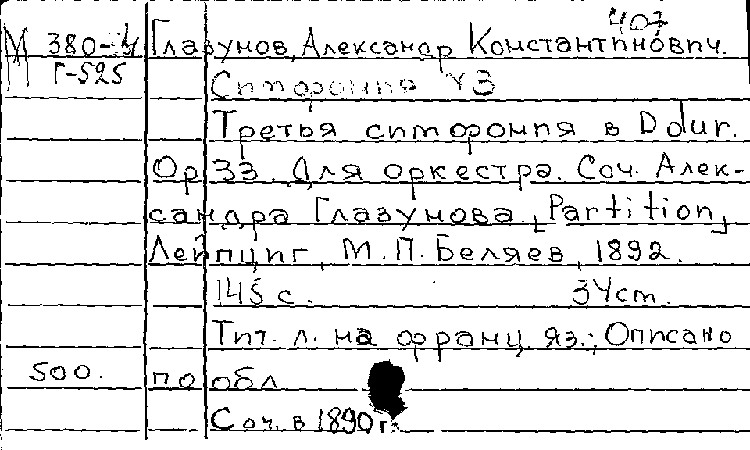 407
М 380-4 Глазунов, Александр Константинович.
Г-525
Симфония №3
Третья симфония в D dur.
Op. 33. Для оркестра. Соч. Алек-
сандра Глазунова. [Partition]
Лейпциг, М.П. Беляев, 1892.
145 с. 34 cm.
Тит. л. на франц. яз.; Описано
500. по обл
Соч. в 1890 г.